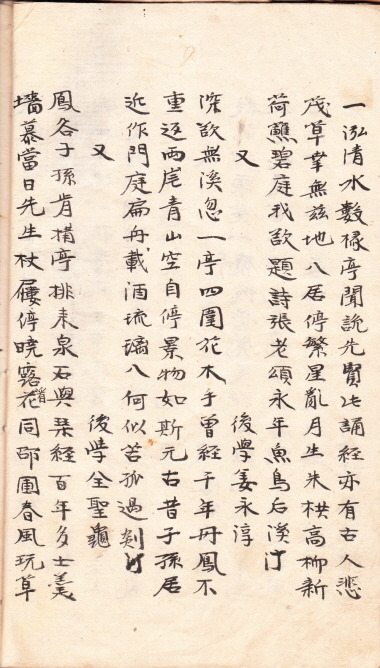 一泓清水數椽亭聞說先賢此誦經亦有古人悲
茂草幸無茲地入居停繁星亂月生朱栱高柳新
荷蘸碧庭我欲題詩張老頌永年魚鳥后溪汀
又　後學姜永淳
深欲無溪忽一亭四圍花木手曾經千年丹鳳不
重返兩崖青山空自停景物如斯元古昔子孫居
近作門庭扁舟載酒琉璃入何似苦孤過剡汀
又　後學全聖龜
鳳谷子孫肯構亭排耒泉石與琴經百年多士羹
墻慕當日先生杖屨停曉露花同邵圃春風玩草